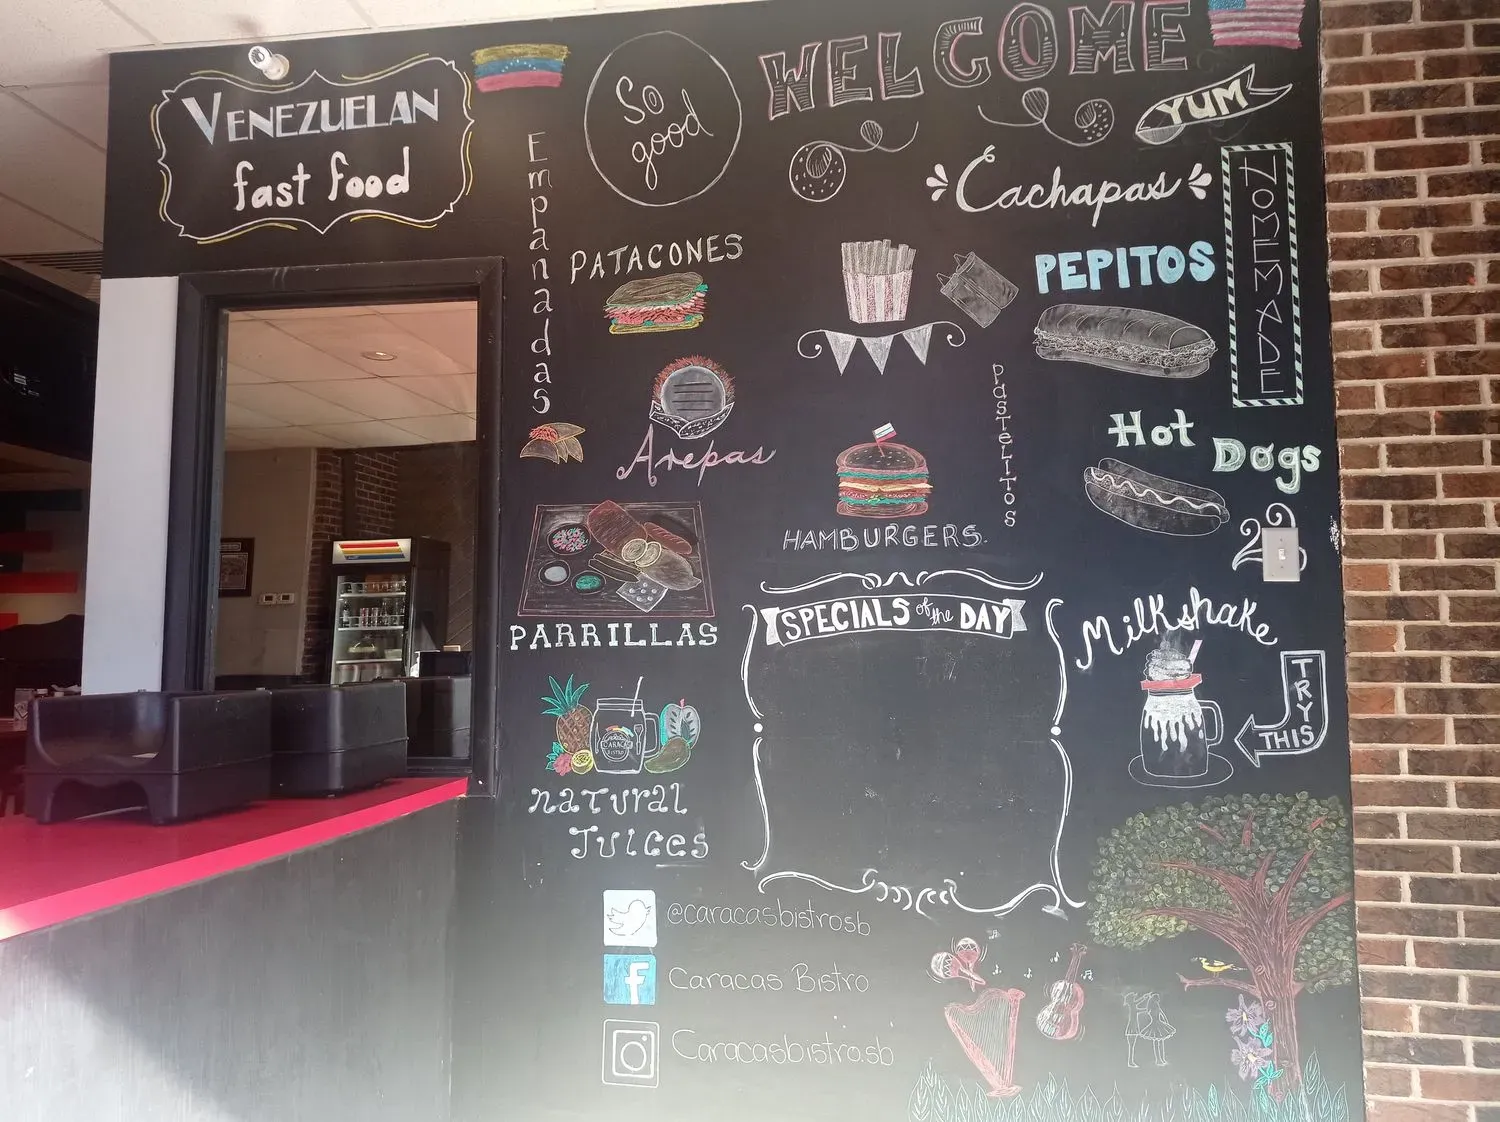 VENEZUELAN
fast food
Empanadas
So
good
WELCOME
YUM
Cachapas
HOMEMADE
PATACONES
PEPITOS
Arepas
PASTELITOS
Hot
Dogs
HAMBURGERS.
PARRILLAS
SPECIALS of the DAY
Milkshake
TRY
THIS
CARACAS
BISTRO
natural
Juices
@caracasbistrosb
Caracas Bistro
Caracasbistro.sb